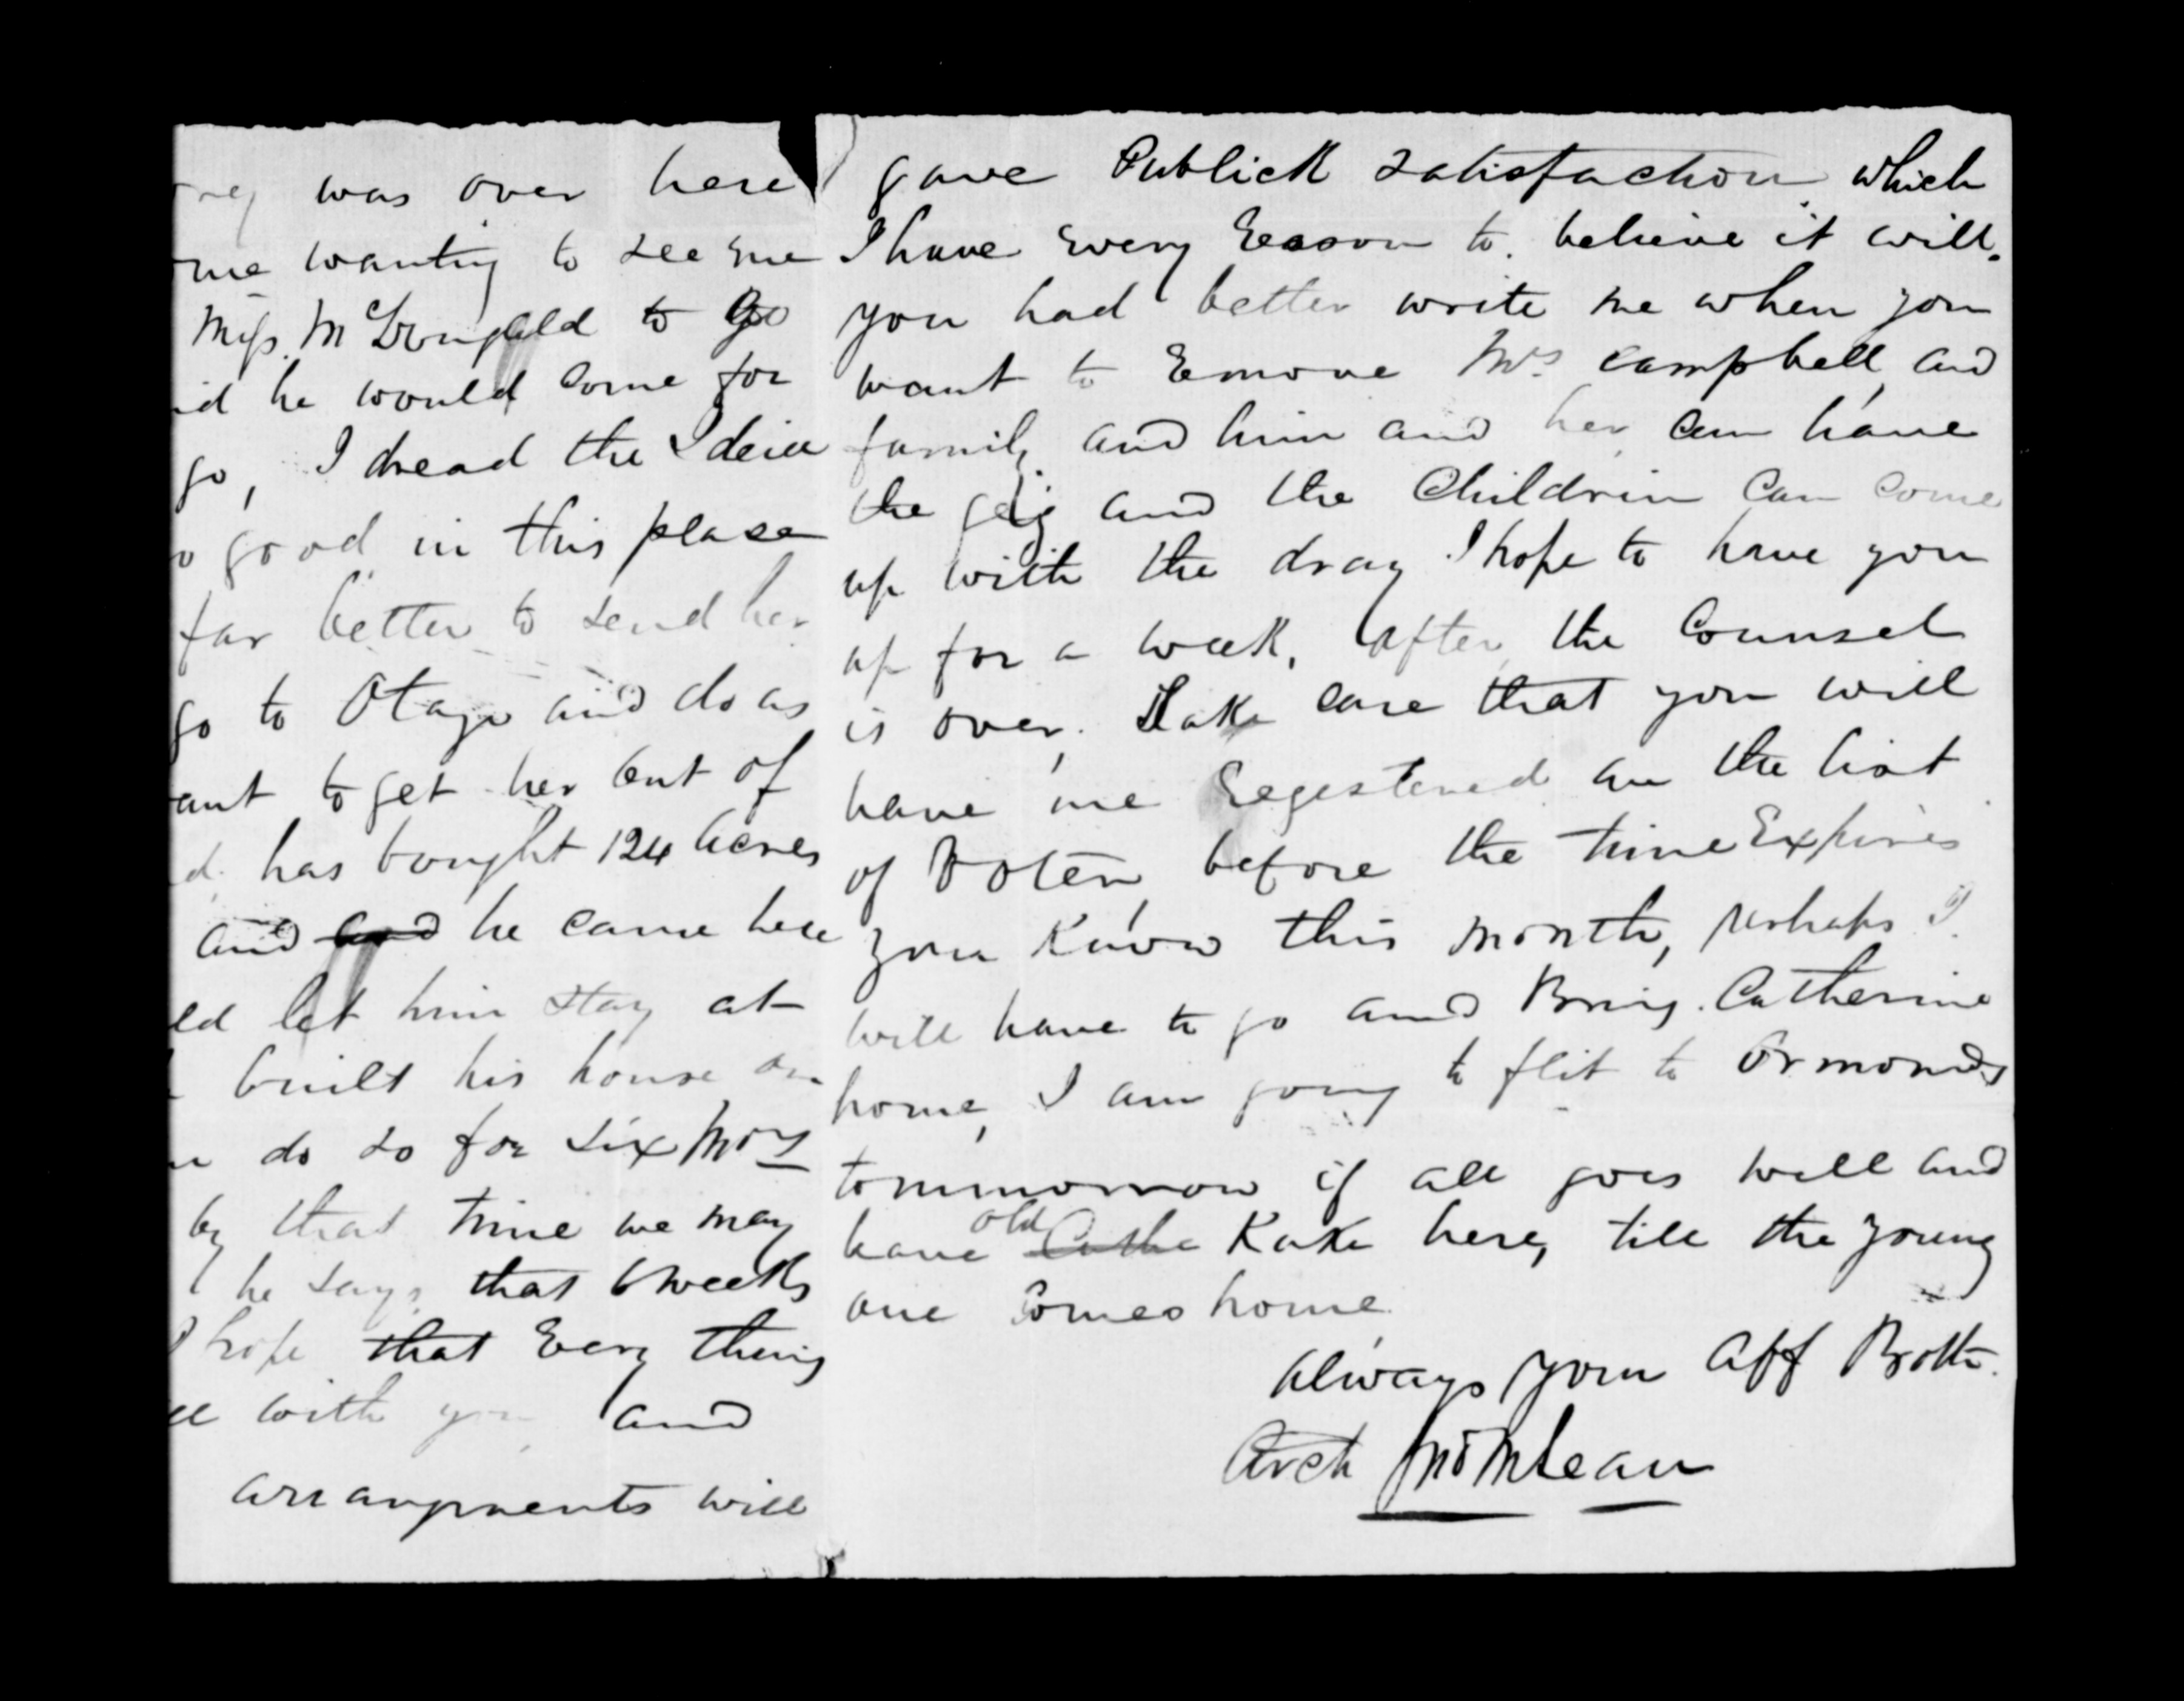 was over here
me wanting to see me
Miss McDougald to go
he would come for
go, I dread the Ideia
good in this plase
far better to send her
go to Otago and do as
ant to get her out of
has bought 124 acres
and and he came here
ld let him stay at
built his house on
do so for six Mos
by that time we may
he says that 6 weeks
hope that Every thing
with you and
arrangments will
gave Publick satisfaction which
I have Every Reason to believe it will.
you had better write me when you
want to Remove Mrs Campbell and
family and him and her can have
the geig and the Childrin Can Come
up with the dray I hope to have you
up for a week, after the Counsel
is over. Take care that you will
have me Regestered on the list
of Voters before the time Expires
you Know this month, perhaps I
will have to go and Bring Catherine
home, I am going to flit to Ormonds
tommorrow if all goes well and
have old Kate here, till the young
one Comes home
always your Aff Broth.
Arch Jno McLean